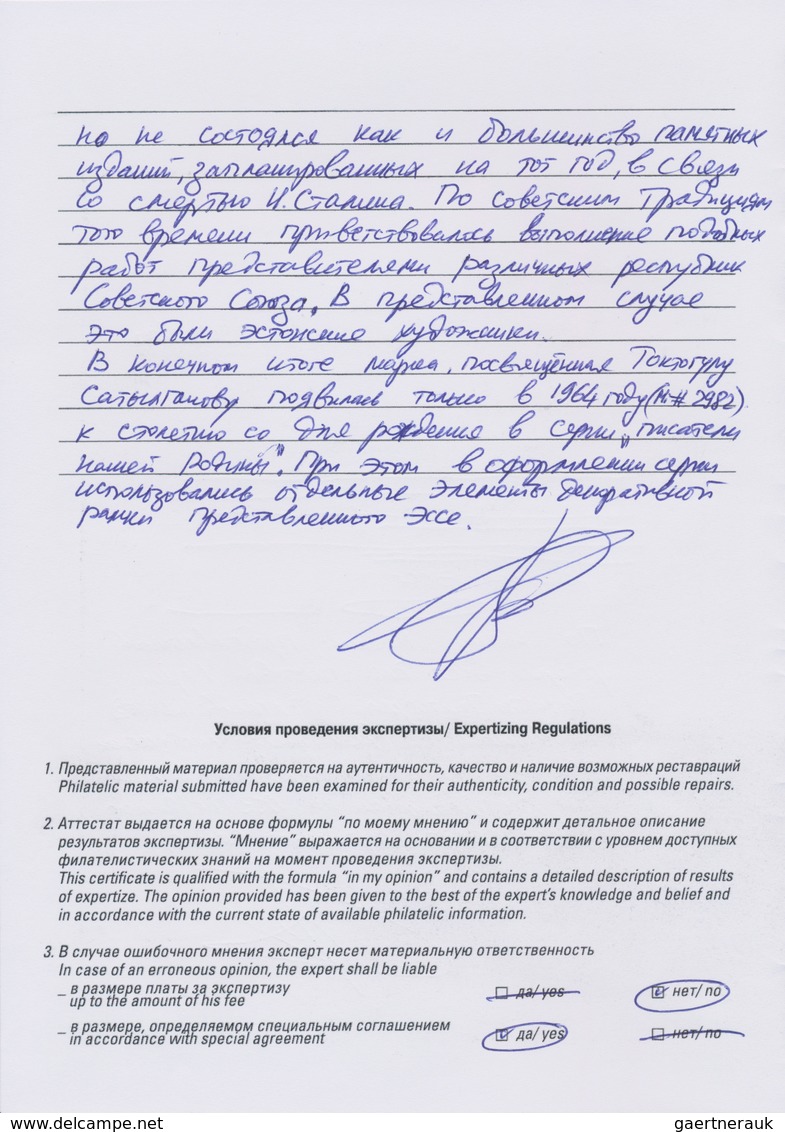 но не состоялся как и большинство памятных
изданий, запланированных на тот год, в связи
со смертью И. Сталина. По советским традициям
того времени приветствовалось выполнение подобных
работ представителями различных республик
Советского Союза. В представленном случае
это были эстонские художники.
В конечном итоге марка, посвящённая Токтогулу
Сатылганову появилась только в 1964 году (Mi# 2982)
к столетию со дня рождения в серии „писатели
нашей Родины". При этом в оформлении серии
использовались отдельные элементы декоративной
рамки представленного Эссе.
Условия проведения экспертизы/ Expertizing Regulations
1. Представленный материал проверяется на аутентичность, качество и наличие возможных реставраций
Philatelic material submitted have been examined for their authenticity, condition and possible repairs.
2. Аттестат выдается на основе формулы “по моему мнению” и содержит детальное описание
результатов экспертизы. “Мнение” выражается на основании и в соответствии с уровнем доступных
филателистических знаний на момент проведения экспертизы.
This certificate is qualified with the formula “in my opinion” and contains a detailed description of results
of expertize. The opinion provided has been given to the best of the expert’s knowledge and belief and
in accordance with the current state of available philatelic information.
3. В случае ошибочного мнения эксперт несет материальную ответственность
In case of an erroneous opinion, the expert shall be liable
_ в размере платы за экспертизу да/ yes нет/ no
up to the amount of his fee
_ в размере, определяемом специальным соглашением да/ yes нет/ no
in accordance with special agreement
www.delcampe.net gaertnerauk